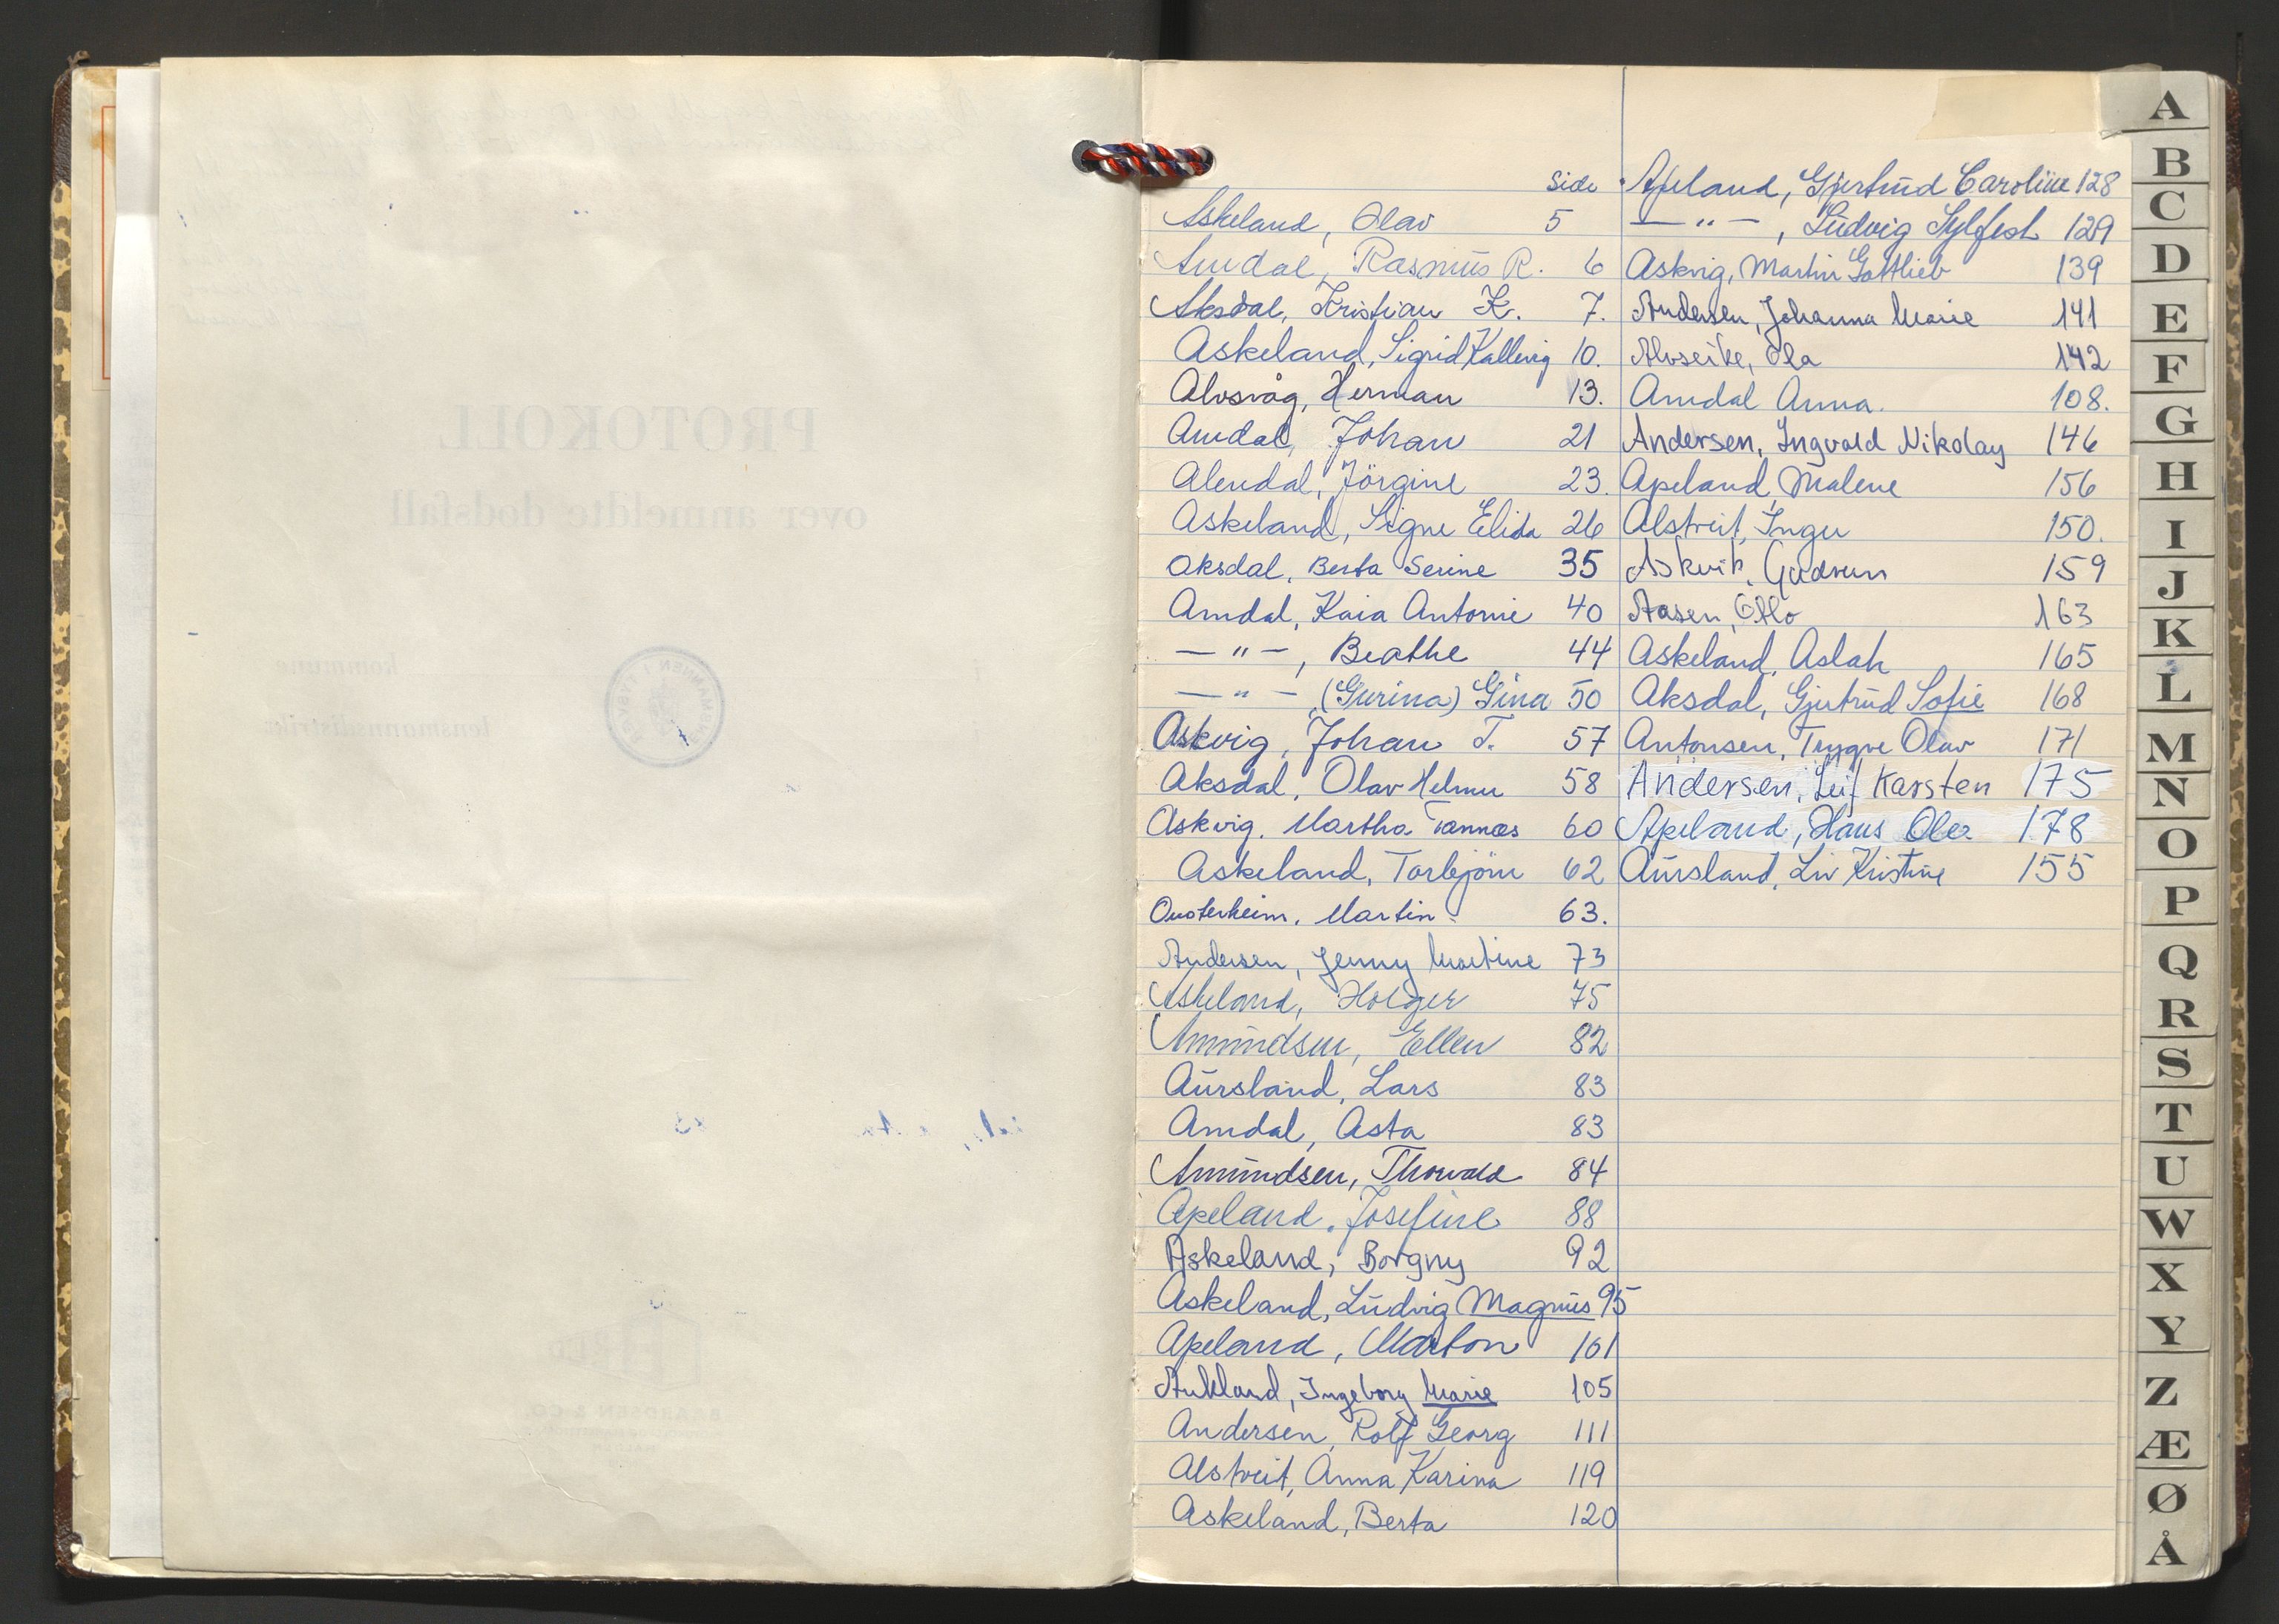 PROTOKOLL
over anmeldte dødsfall
kommune
lensmannsdistrikt
Side
Askeland, Olav 5
Amdal, Rasmus R. 6
Aksdal, Kristian K. 7.
Askeland, Sigrid Kallevig 10.
Alvsvåg, Herman 13.
Amdal, Johan 21
Alendal, Jörgine 23.
Askeland, Signe Elida 26
Aksdal, Berta Serine 35
Amdal, Kaia Antonie 40
— " —, Beathe 44
— " —, (Gurina) Gina 50
Askvig, Johan T. 57
Aksdal, Olav Helmer 58
Askvig, Martha Tannæs 60
Askeland, Torbjörn 62
Austerheim, Martin 63.
Andersen, Jenny Martine 73
Askeland, Holger 75
Amundsen, Ellen 82
Aursland, Lars 83
Amdal, Asta 83
Amundsen, Thorvald 84
Apeland, Josefine 88
Askeland, Borgny 92
Askeland, Ludvig Magnus 95
Apeland, Marton 101
Aukland, Ingeborg Marie 105
Andersen, Rolf Georg 111
Alstveit, Anna Karina 119
Askeland, Berta 120
Apeland, Gjertrud Caroline 128
— " —, Ludvig Sylfest 129
Askvig, Martin Gottlieb 139
Andersen, Johanna Marie 141
Alvseike, Ola 142
Amdal Anna. 108.
Andersen, Ingvald Nikolay 146
Apeland, Malene 156
Alstveit, Inger 150.
Askvik, Gudrun 159
Aasen, Otto 163
Askeland, Aslak 165
Aksdal, Gjertrud Sofie 168
Antonsen, Trygve Olav 171
Andersen, Leif Karsten 175
Apeland, Hans Olea 178
Aursland, Liv Kristine 155
A
B
C
D
E
F
G
H
I
J
K
L
M
N
O
P
Q
R
S
T
U
W
X
Y
Z
Æ
Ø
Å